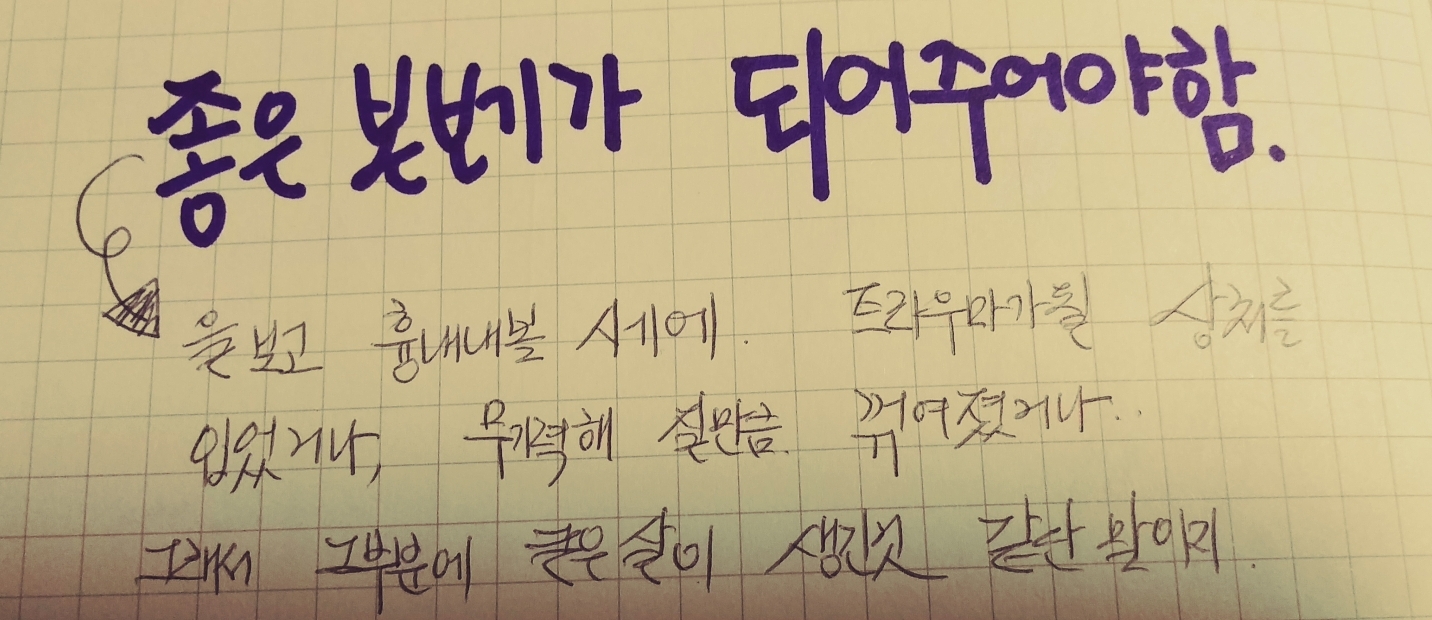 좋은 본보기가 되어주어야함.
을 보고 흉내내볼 시세에. 트라우마가될 상처를
입었거나, 무기력해 질만큼. 꺾여졌거나..
그래서 그부분에 굳은살이 생긴것 같단 말이지.